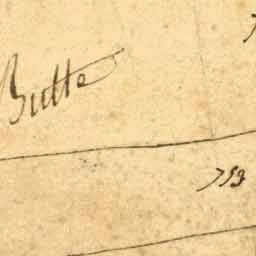 Butte
753